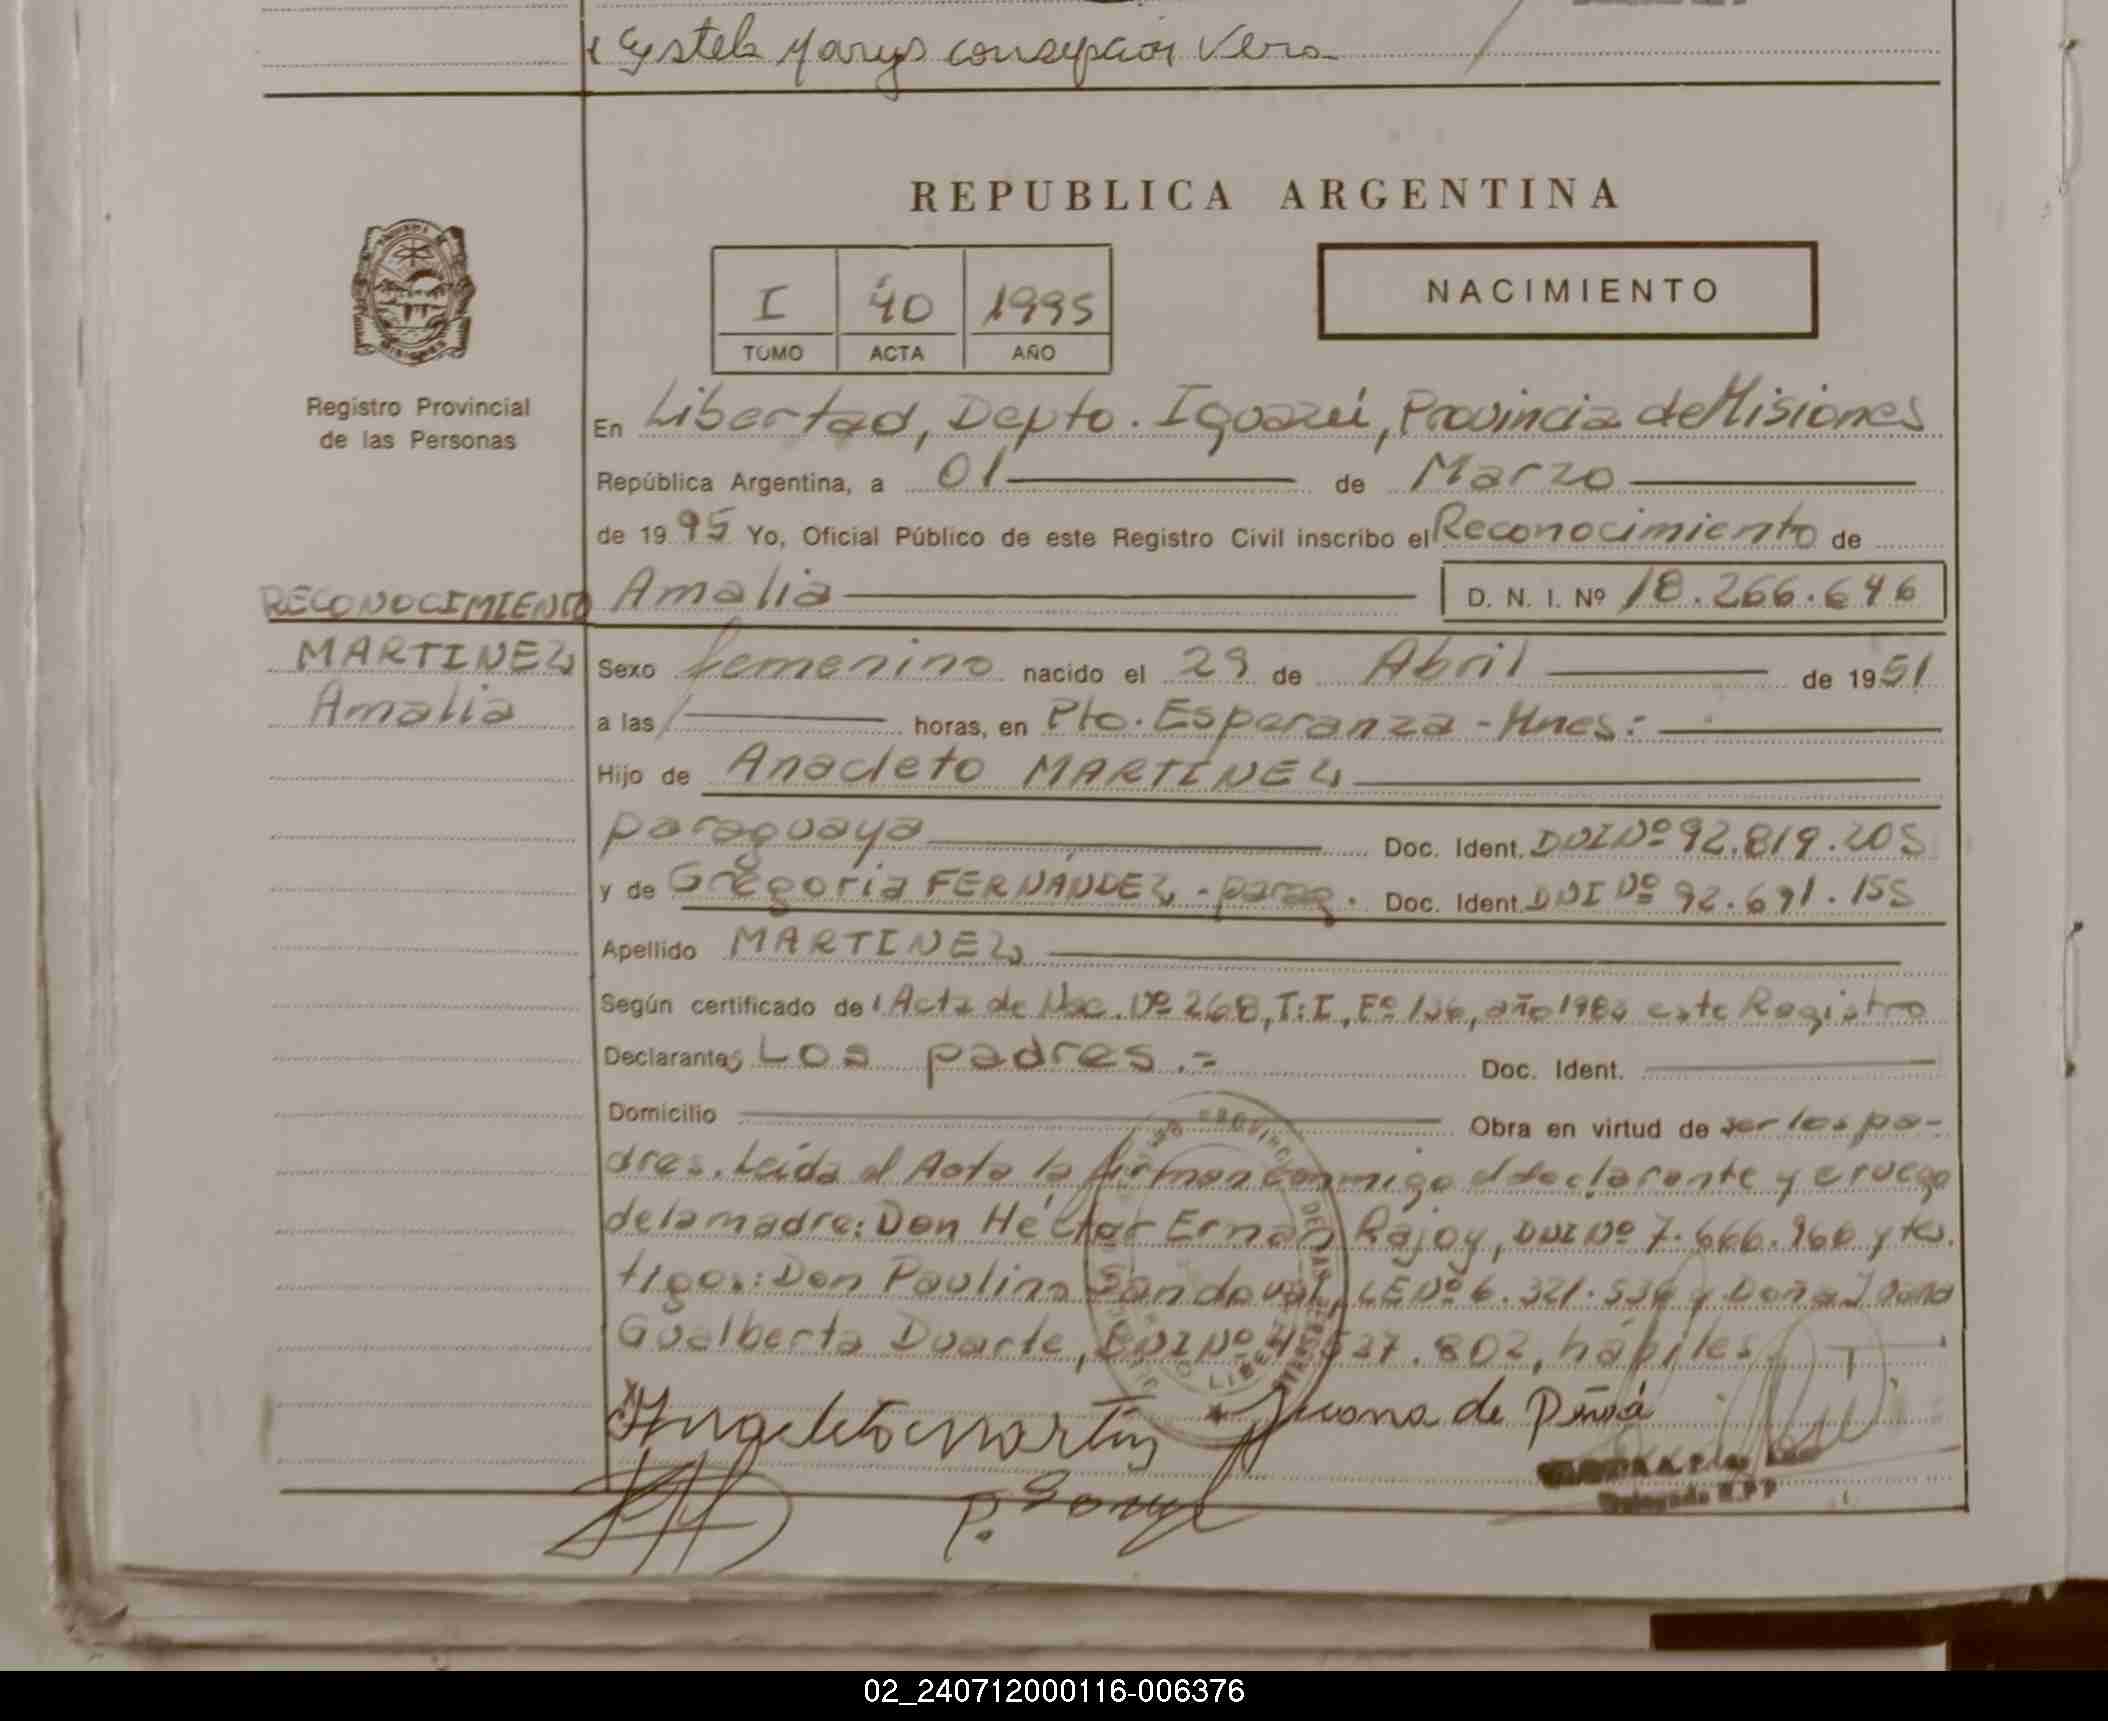 Vera
REPUBLICA ARGENTINA
NACIMIENTO
I 40 1995
TOMO ACTA AÑO
Registro Provincial
de las Personas
En Libertad, Depto. Iguazú, Provincia de Misiones
República Argentina, a 01 de Marzo
de 1995 Yo, Oficial Público de este Registro Civil inscribo el Reconocimiento de
RECONOCIMIENTO
Amalia D. N. I. Nº 18.266.646
MARTINEZ
Amalia
Sexo femenino nacido el 29 de Abril de 1951
a las horas, en Pto. Esperanza - Mnes:
Hijo de Anacleto MARTINEZ
paraguaya Doc. Ident. DNI Nº 92.819.205
y de Gregoria FERNÁNDEZ - parag. Doc. Ident. DNI Nº 92.691.155
Apellido MARTINEZ
Según certificado de Acta de Nac. Nº 268, T: I, Fº 136, año 1983 este Registro
Declarantes Los padres.=
Doc. Ident.
Domicilio Obra en virtud de ser los pa-
dres. Leída el Acta la firman conmigo el declarante y a ruego
de la madre: Don Héctor Ernan Rajoy, DNI Nº 7.666.966 y tes.
tigos: Don Paulino Sandoval, LE Nº 6.321.536 y Doña Juana
Gualberta Duarte, DNI Nº 537.802, hábiles.
Juana de
P.
02_240712000116-006376